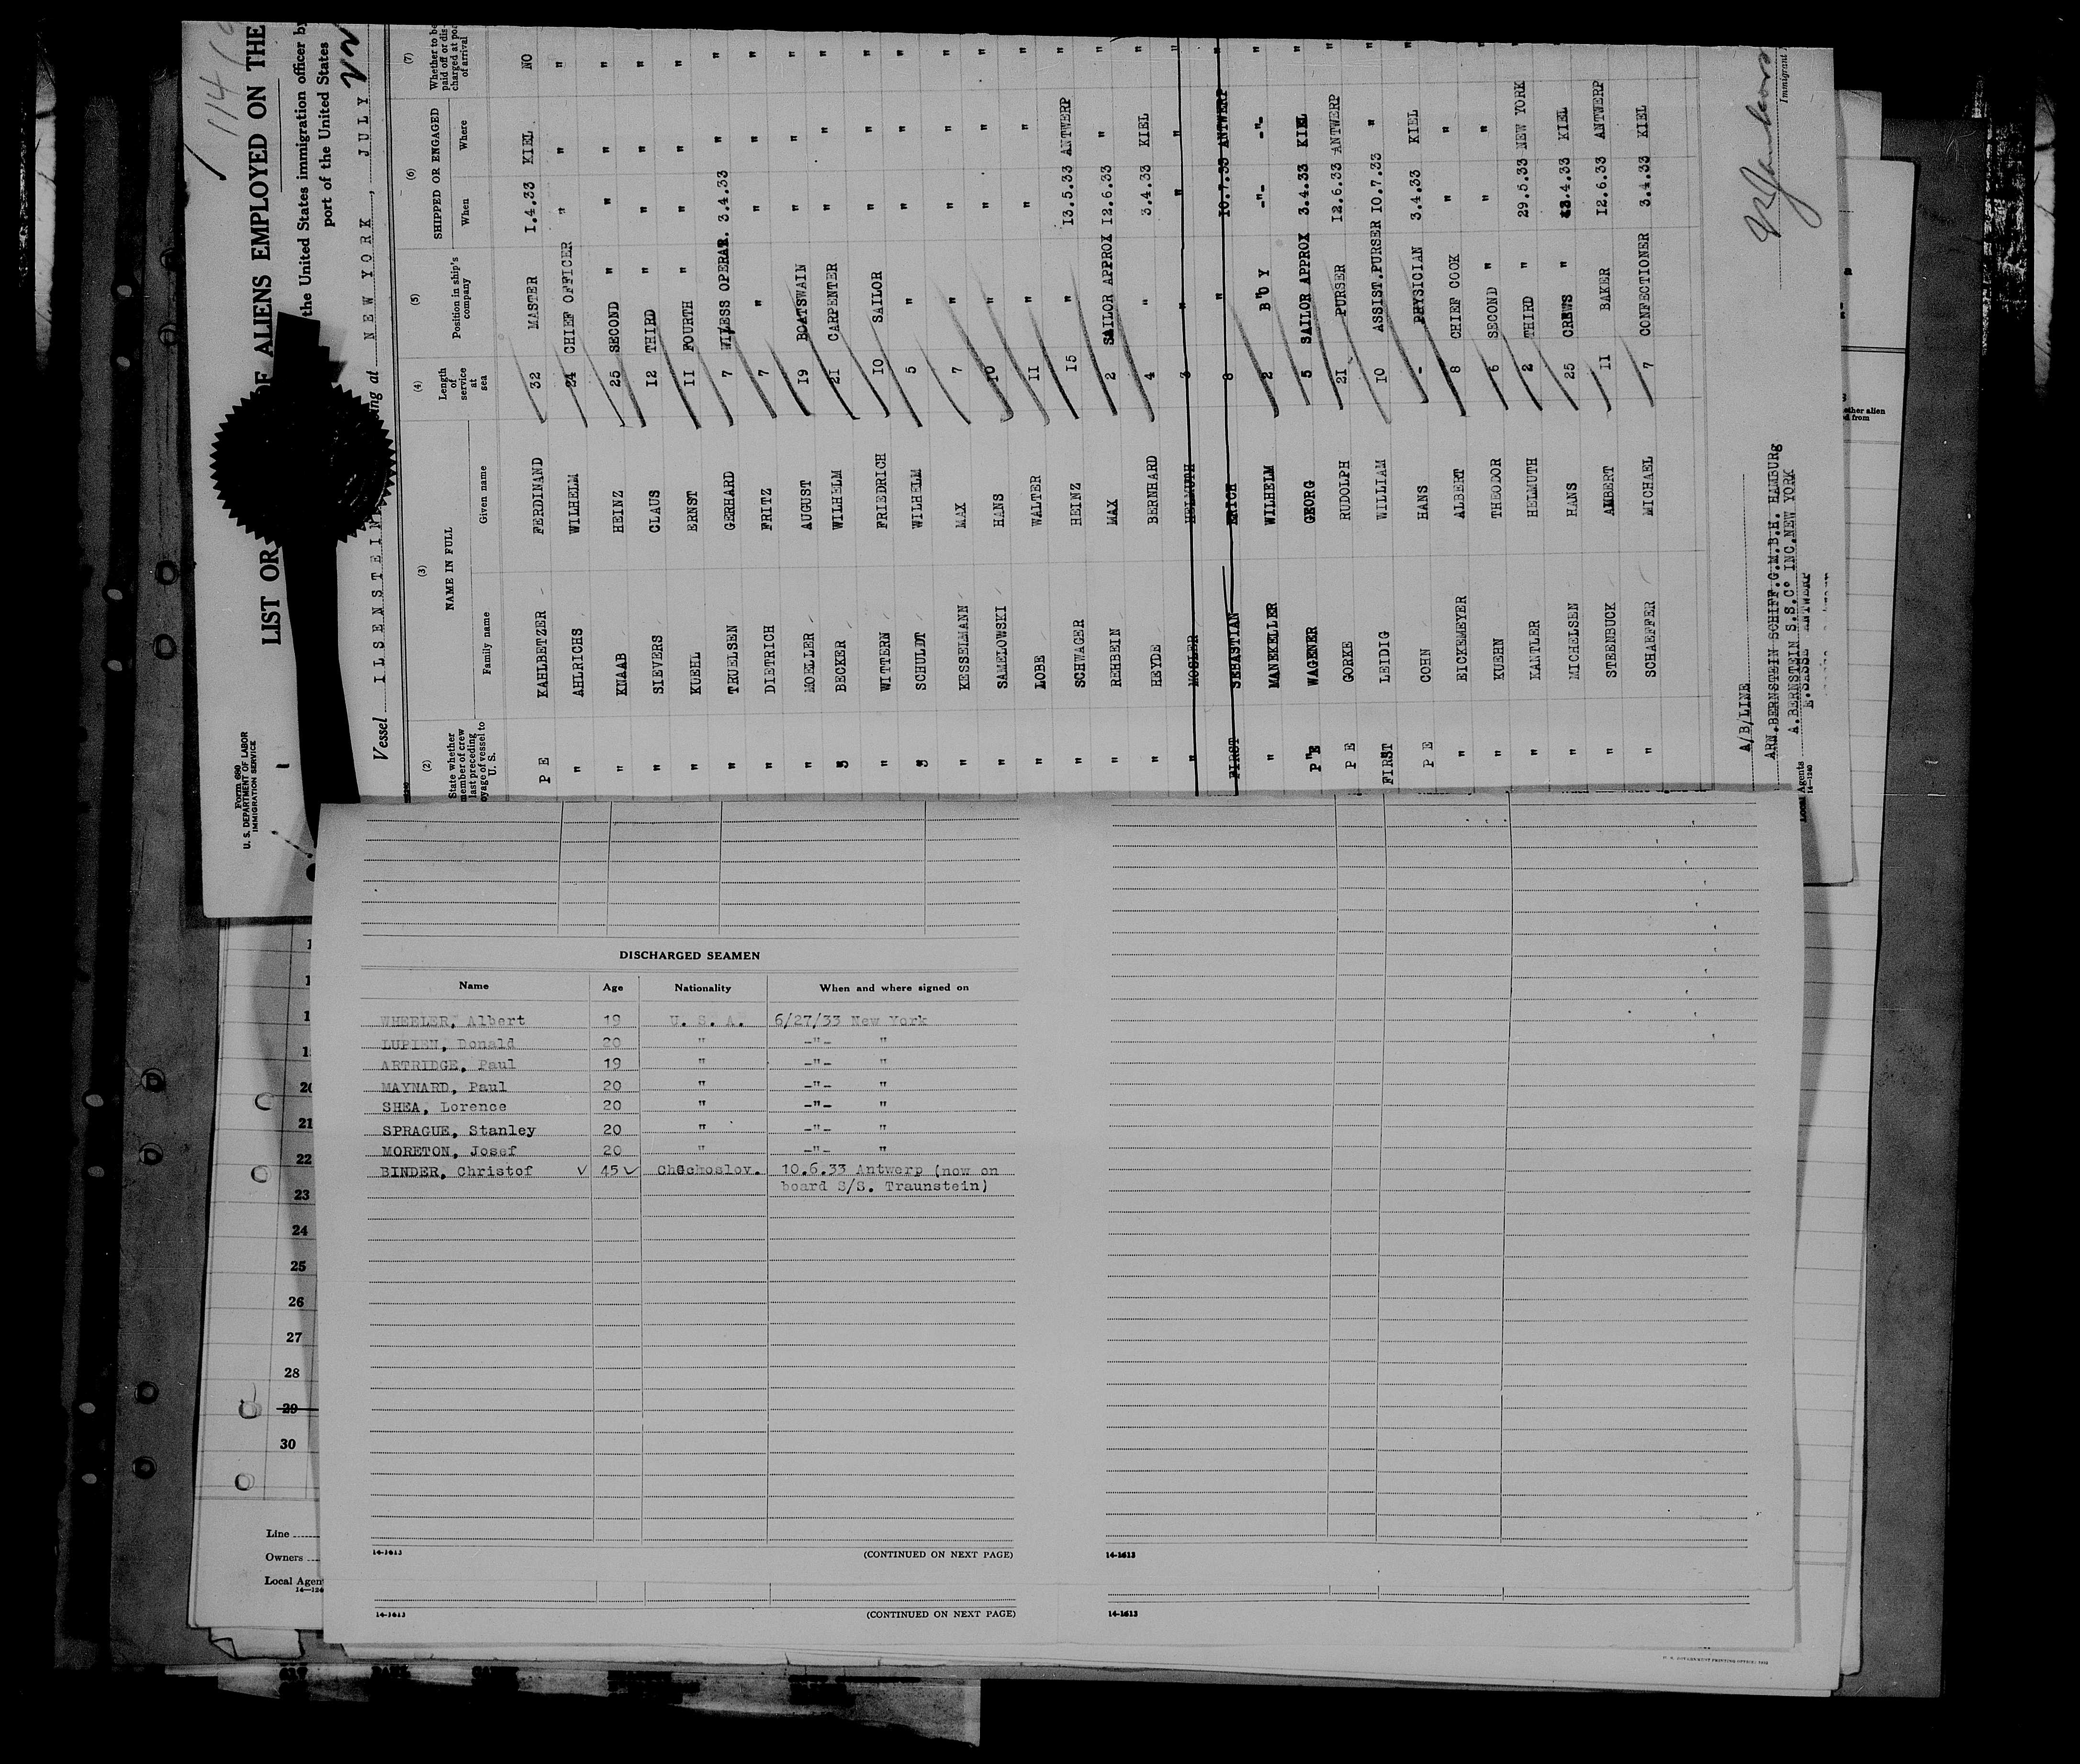 Form 680
U. S. DEPARTMENT OF LABOR
IMMIGRATION SERVICE
114
LIST OR OF ALIENS EMPLOYED ON THE
the United States immigration officer by
port of the United States
Vessel ILSENSTEIN ing at NEW YORK, JULY
(2) (3) (4) (5) (6) (7)
State whether member of crew last preceding voyage of vessel to U. S. NAME IN FULL Length of service at sea Position in ship's company SHIPPED OR ENGAGED Whether to be paid off or discharged at port of arrival
Family name Given name When Where
P E KAHLBETZER FERDINAND 32 MASTER 1.4.33 KIEL NO
" AHLRICHS WILHELM 24 CHIEF OFFICER " " "
" KNAAB HEINZ 25 SECOND " " " "
" SIEVERS CLAUS 12 THIRD " " " "
" KUEHL ERNST 11 FOURTH " " " "
" TRUELSEN GERHARD 7 WILESS OPERAR. 3.4.33 " "
" DIETRICH FRITZ 7 " " " "
" MOELLER AUGUST 19 BOATSWAIN " " "
" BECKER WILHELM 21 CARPENTER " " "
" WITTERN FRIEDRICH 10 SAILOR " " "
" SCHULDT WILHELM 5 " " " "
" KESSELMANN MAX 7 " " " "
" SAMELOWSKI HANS 10 " " " "
" LOBE WALTER 11 " " " "
" SCHWAGER HEINZ 15 " 13.5.33 ANTWERP "
" REHBEIN MAX 2 SAILOR APPROX 12.6.33 " "
" HEYDE BERNHARD 4 " 3.4.33 KIEL "
" MOSLER HELMUTH 3 " " " "
FIRST SEBASTIAN ERICH 8 " 10.7.33 ANTWERP "
" MANEKELLER WILHELM 2 BOY -"- -"- "
P E WAGENER GEORG 5 SAILOR APPROX 3.4.33 KIEL "
P E GORKE RUDOLPH 21 PURSER 12.6.33 ANTWERP "
FIRST LEIDIG WILLIAM 10 ASSIST.PURSER 10.7.33 " "
P E COHN HANS - PHYSICIAN 3.4.33 KIEL "
" EICKEMEYER ALBERT 8 CHIEF COOK " " "
" KUEHN THEODOR 6 SECOND " " " "
" KANTLER HELMUTH 2 THIRD " 29.5.33 NEW YORK "
" MICHELSEN HANS 25 CREWS " 3.4.33 KIEL "
" STEENBUCK AMBERT 11 BAKER 12.6.33 ANTWERP "
" SCHAEFFER MICHAEL 7 CONFECTIONER 3.4.33 KIEL "
A/B/LINE
ARN.BERNSTEIN SCHIFF.G.M.B.H. HAMBURg
A.BERNSTEIN S.S.Co INC.NEW YORK
Local Agents
14-1240
Immigrant
20
21
22
23
24
25
26
27
28
29
30
Line
Owners
Local Agen
DISCHARGED SEAMEN
Name Age Nationality When and where signed on
WHEELER, Albert 19 U. S. A. 6/27/33 New York
LUPIEN, Donald 20 " -"- "
ARTRIDGE, Paul 19 " -"- "
MAYNARD, Paul 20 " -"- "
SHEA, Lorence 20 " -"- "
SPRAGUE, Stanley 20 " -"- "
MORETON, Josef 20 " -"- "
BINDER, Christof 45 10.6.33 Antwerp (now on
board S/S. Traunstein)
14-1613 (CONTINUED ON NEXT PAGE) 14-1613
14-1613 (CONTINUED ON NEXT PAGE) 14-1613